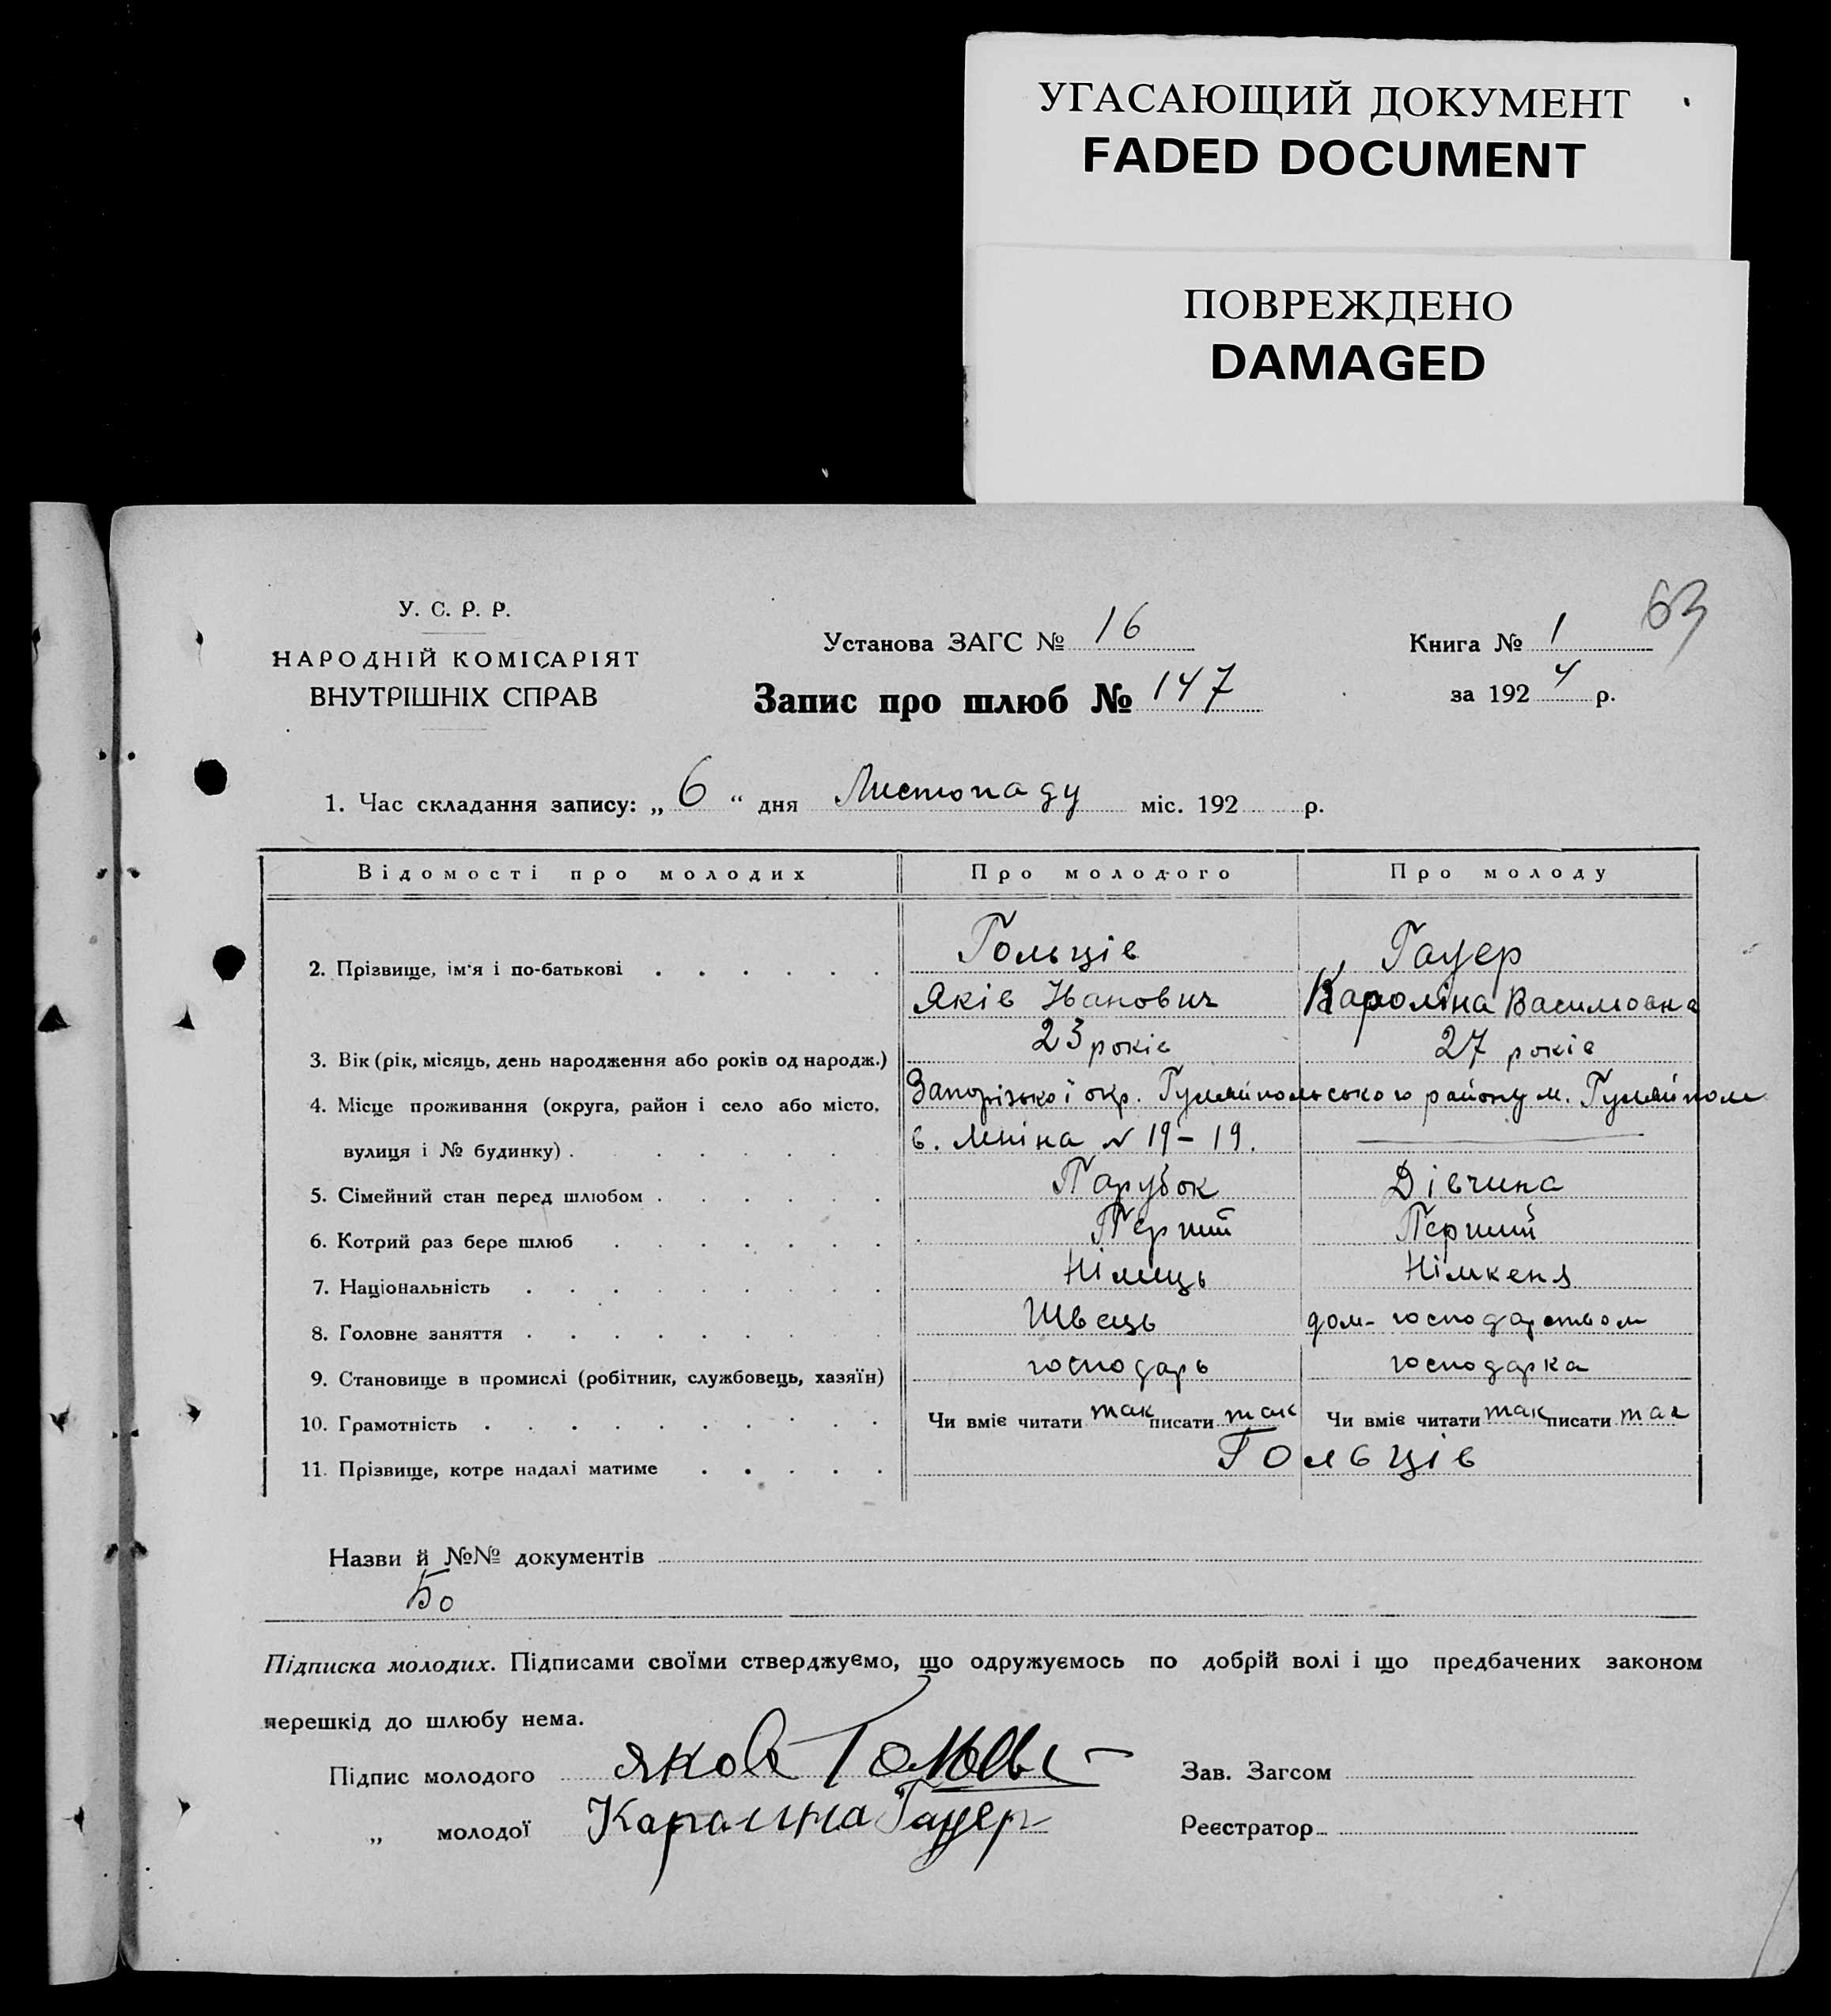 УГАСАЮЩИЙ ДОКУМЕНТ
FADED DOCUMENT
ПОВРЕЖДЕНО
DAMAGED
63
У. С. Р. Р.
НАРОДНІЙ КОМІСАРІЯТ
ВНУТРІШНІХ СПРАВ
Установа ЗАГС № 16
Запис про шлюб № 147
Книга № 1
за 1924 р.
1. Час складання запису: „ 6 “ дня Листопаду міс. 192 р.
Відомості про молодих Про молодого Про молоду
2. Прізвище, ім'я і по-батькові Гольців Гауер
Яків Іванович Кароліна Василювна
3. Вік (рік, місяць, день народження або років од народж.) 23 років 27 років
4. Місце проживання (округа, район і село або місто, Запорізької окр. Гуляйпольського району м. Гуляйполе
вулиця і № будинку). в. Леніна № 19 – 19.
5. Сімейний стан перед шлюбом Парубок Дівчина
6. Котрий раз бере шлюб Перший Перший
7. Національність Німець Німкеня
8. Головне заняття Швець дом- господарством
9. Становище в промислі (робітник, службовець, хазяїн) господарь господарка
10. Грамотність Чи вміє читати так писати так Чи вміє читати так писати так
11. Прізвище, котре надалі матиме Гольців
Назви й №№ документів
Бо
Підписка молодих. Підписами своїми стверджуємо, що одружуємось по добрій волі і що предбачених законом
перешкід до шлюбу нема.
Підпис молодого Яков Зав. Загсом
„ молодої Каралина Гауер Реєстратор